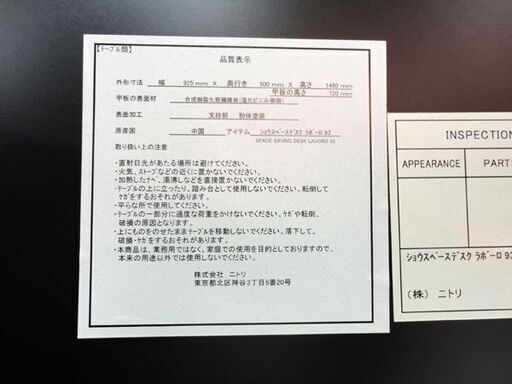 【テーブル類】
品質表示
外形寸法 幅 925 mm X 奥行き 500 mm X 高さ 1480 mm
甲板の高さ 720 mm
甲板の表面材 合成樹脂化粧繊維板(塩化ビニル樹脂)
表面加工 支柱部 粉体塗装
原産国 中国 アイテム ショウスペースデスク ラボーロ 93
SPACE SAVING DESK LAVORO 93
取り扱い上の注意
・直射日光があたる場所は避けてください。
・火気、ストーブなどの近くに置かないでください。
・加熱したナベ、湯沸しなどを直接置かないでください。
・テーブルの上に立ったり、踏み台として使用しないでください。転倒して
ケガをするおそれがあります。
・平らな所で使用してください。
・テーブルの一部分に過度な荷重をかけないでください。ケガや転倒、
破損の原因となります。
・上にものをのせたままテーブルを移動しないでください。落下して、
破損・ケガをするおそれがあります。
・本商品は、業務用ではなく、家庭での使用を目的としておりますので、
本来の用途以外では使用しないでください。
株式会社 ニトリ
東京都北区神谷3丁目6番20号
INSPECTION
APPEARANCE PARTS
ショウスペースデスク ラボーロ 93
(株) ニトリ